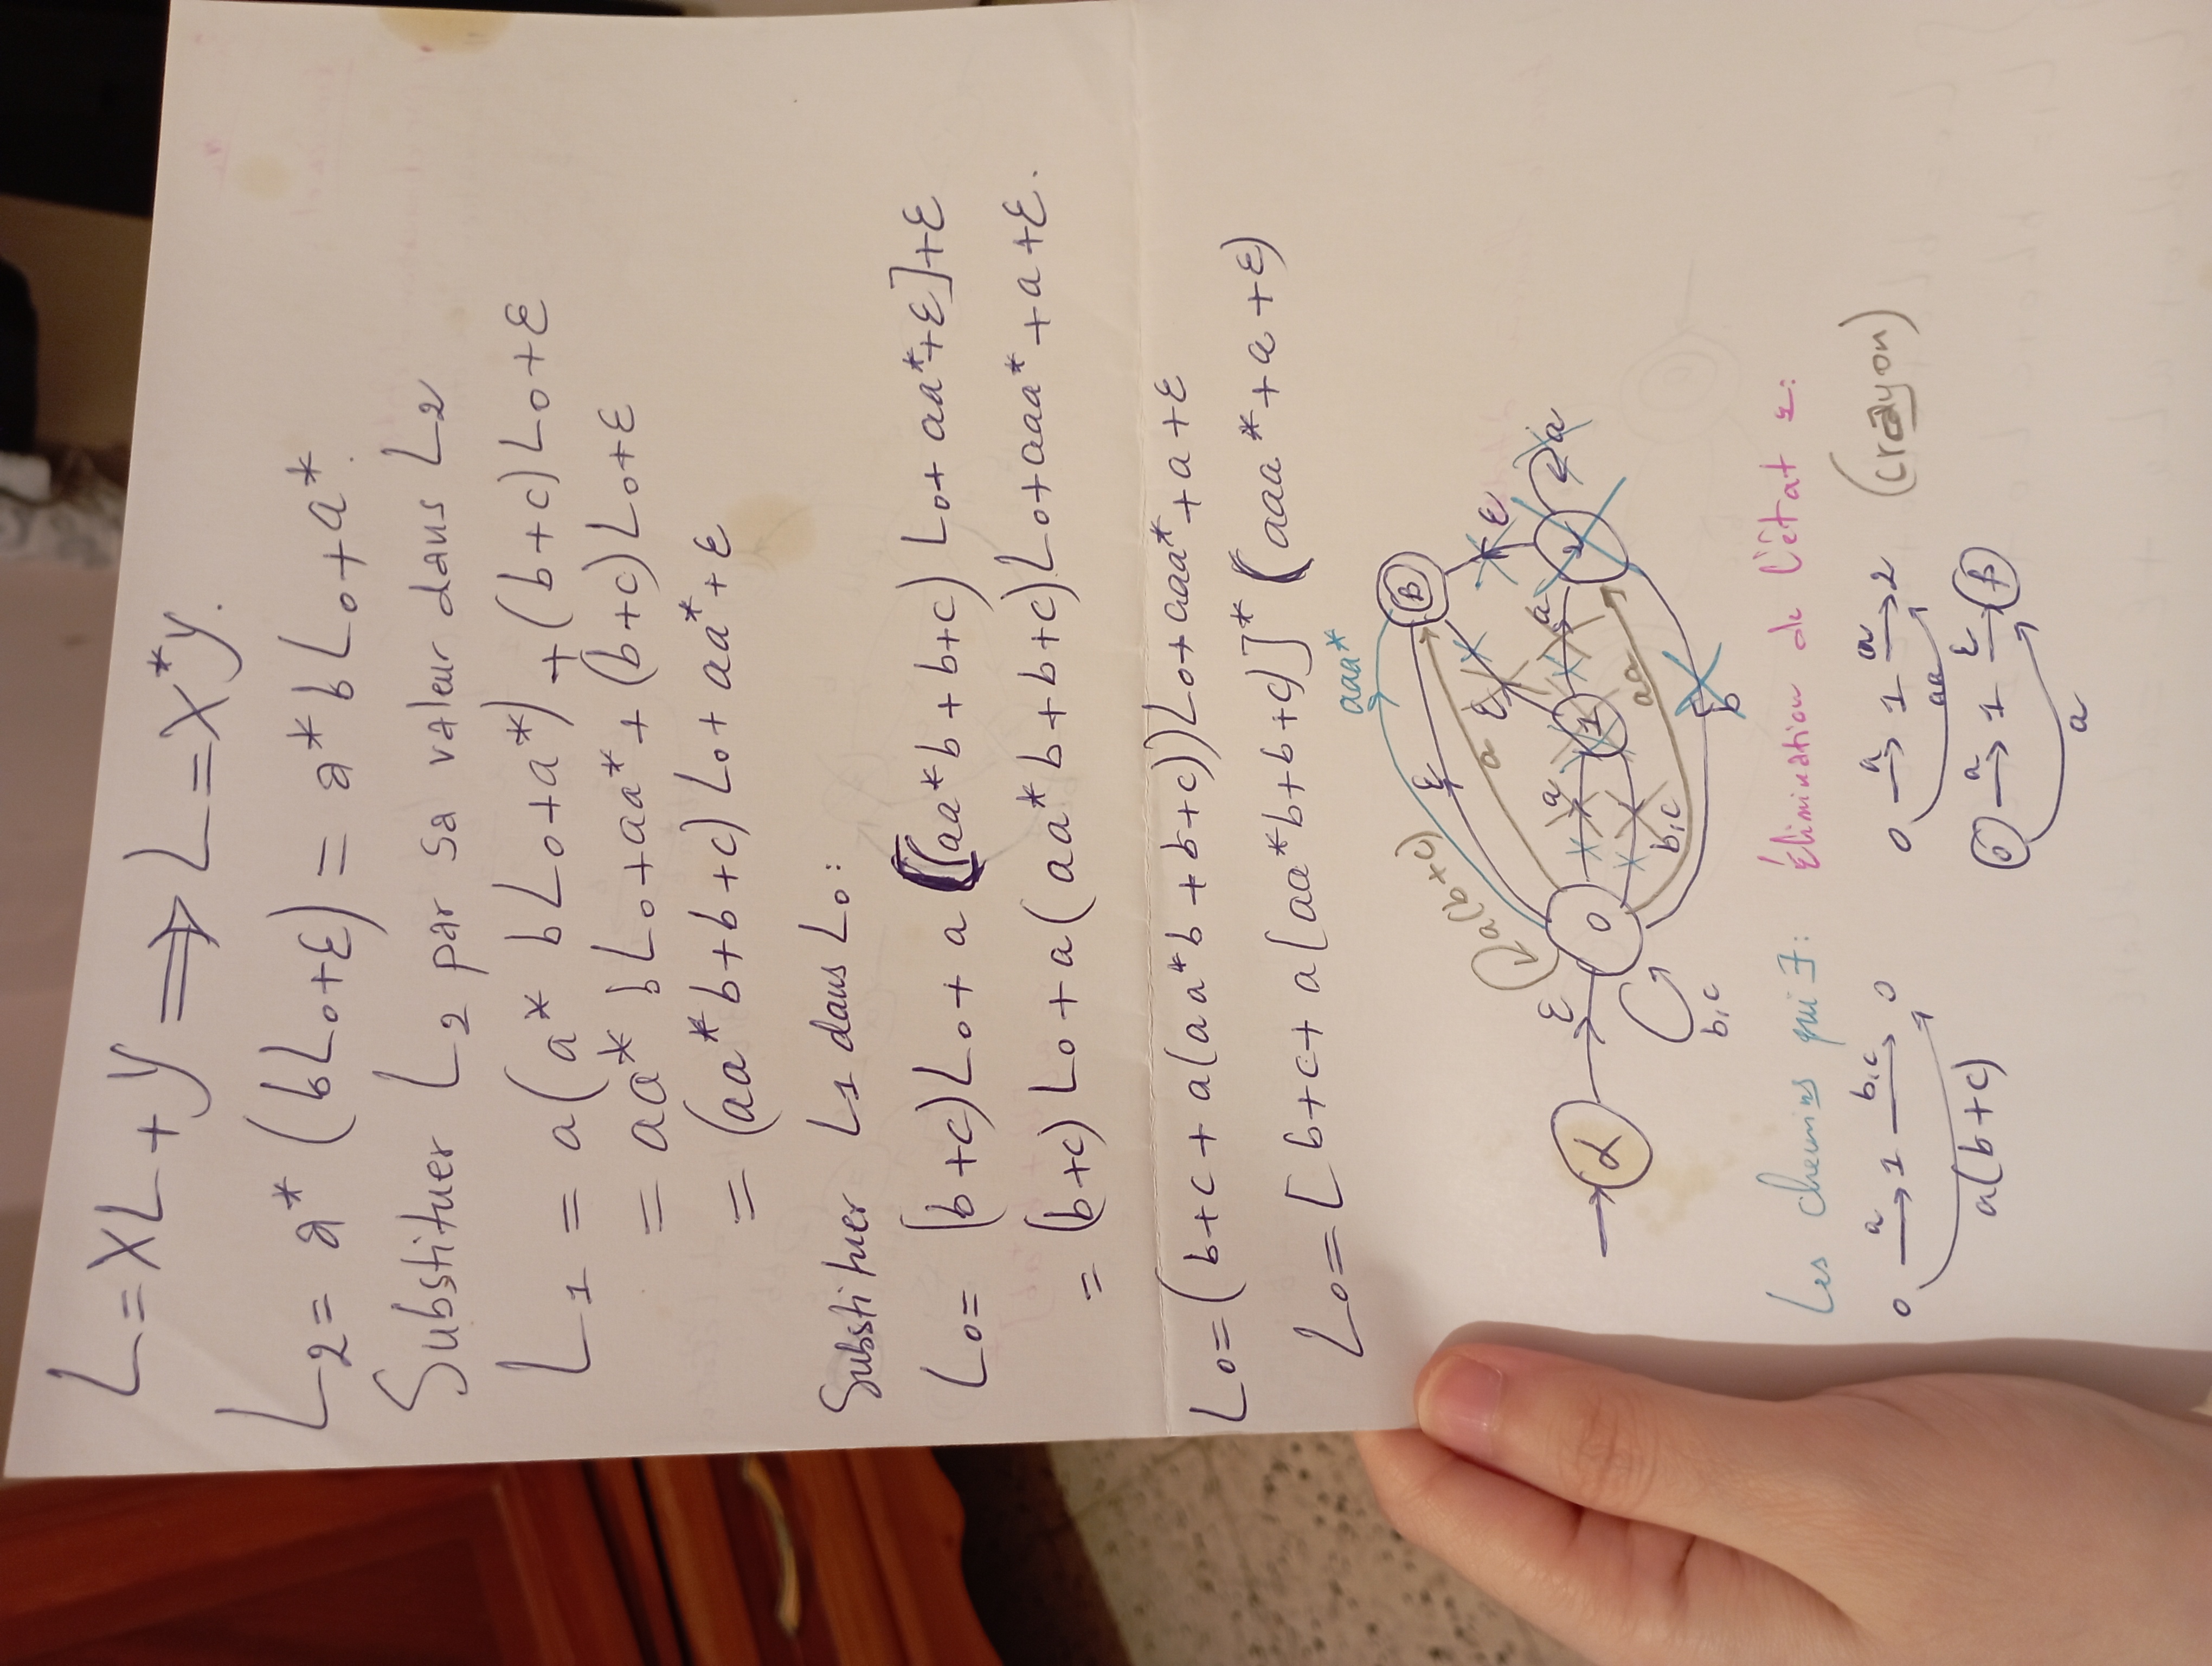 L = XL + Y ⟹ L = X*Y.
L₂ = a* (bL₀+ε) = a* bL₀+a*.
Substituer L₂ par sa valeur dans L₂
L₁ = a(a* bL₀+a*) + (b+c)L₀+ε
= aa* bL₀+aa* + (b+c)L₀+ε
= (aa* b+b+c) L₀+ aa*+ε
Substituer L1 dans L₀ :
L₀= (b+c)L₀+ a [(aa*b + b+c) L₀+ aa*+ε]+ε
= (b+c) L₀ + a( aa* b+b+c)L₀+aaa* +a+ε.
L₀=(b+c + a(aa*b +b+c))L₀+aaa* +a+ε
L₀= [b+c+ a(aa*b+b+c)]* (aaa*+a+ε)
aaa*
a(b+c)
ε
β
a
ε
ε
ε
a
a
a
α
0
1
2
aa
b,c
b,c
b
Les chemins qui ∃ :
Élimination de l'état 1:
0 a→ 1 b,c→ 0
a(b+c)
0 a→ 1 a→ 2
aa
(crayon)
0 a→ 1 ε→ β
a